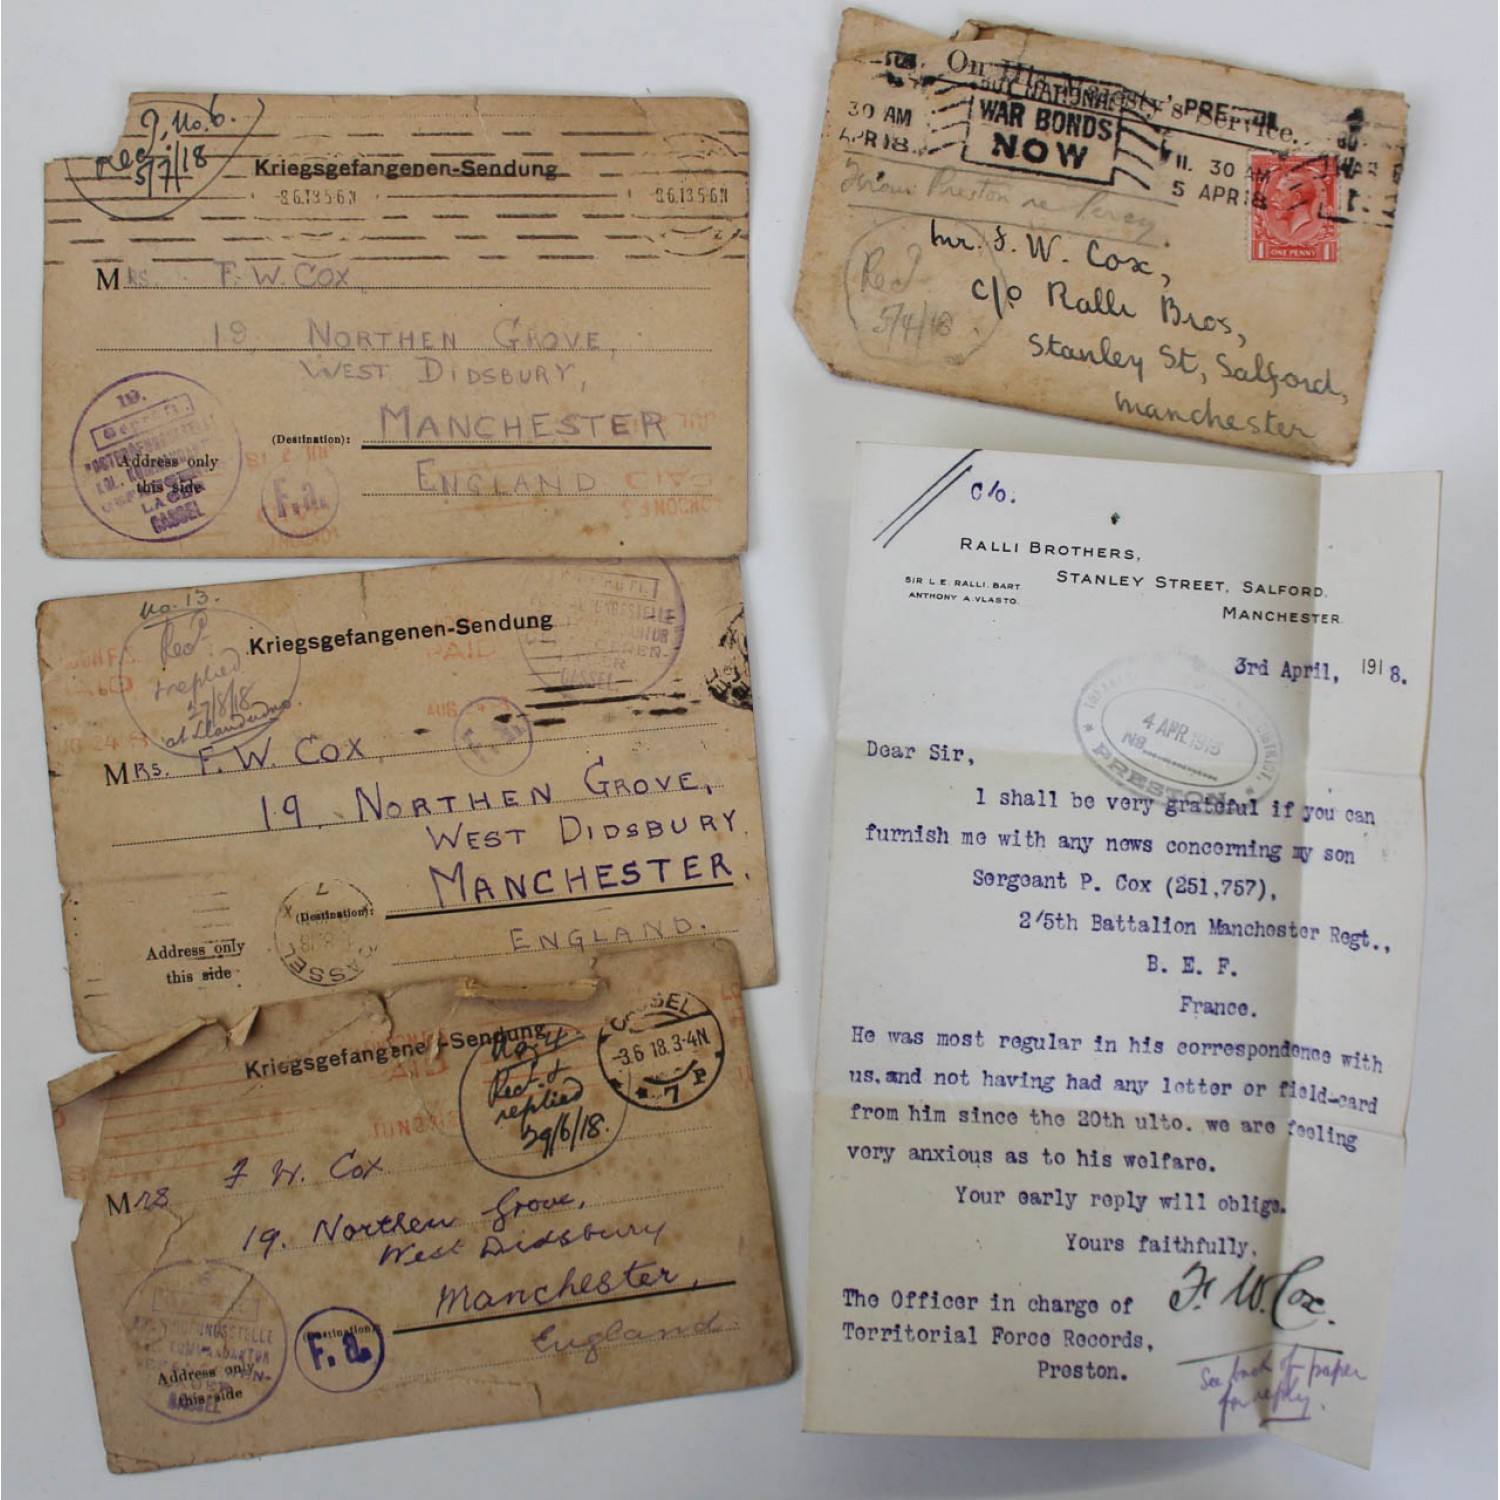 ?, No. 6.
Recd.
5/7/18
Kriegsgefangenen-Sendung
MRS. F. W. COX,
19, NORTHEN GROVE,
WEST DIDSBURY,
(Destination): MANCHESTER
ENGLAND
Geprüft.
Address only
this side
LAGER
CASSEL
F.a.
No. 13.
Recd.
+ replied
27/8/18
at Llandudno.
Kriegsgefangenen-Sendung
PAID
CASSEL
MRS. F. W. COX,
19, NORTHEN GROVE,
WEST DIDSBURY,
(Destination): MANCHESTER.
ENGLAND.
Address only
this side
CASSEL
Kriegsgefangenen-Sendung
No. 4
Recd. &
replied
29/6/18.
CASSEL
-3.6 18.3-4N
* 7 P
MRS F W. Cox
19. Northen Grove,
West Didsbury
(Destination): Manchester,
England.
F.a.
Address only
this side
CASSEL
On His Majesty's Service.
BUY NATIONAL
WAR BONDS
NOW
30 AM
APR 18
11. 30 AM
5 APR 18
ONE PENNY
From Preston re Percy.
Recd.
5/4/18
Mr. F. W. Cox,
c/o Ralli Bros,
Stanley St, Salford,
Manchester
c/o.
RALLI BROTHERS,
SIR L. E. RALLI. BART.
ANTHONY A. VLASTO.
STANLEY STREET, SALFORD.
MANCHESTER.
3rd April, 1918.
4 APR. 1918
No.
PRESTON
Dear Sir,
I shall be very grateful if you can
furnish me with any news concerning my son
Sergeant P. Cox (251,757),
2/5th Battalion Manchester Regt.,
B. E. F.
France.
He was most regular in his correspondence with
us.and not having had any letter or field-card
from him since the 20th ulto. we are feeling
very anxious as to his welfare.
Your early reply will oblige.
Yours faithfully,
F. W. Cox.
The Officer in charge of
Territorial Force Records,
Preston.
See back of paper
for reply.